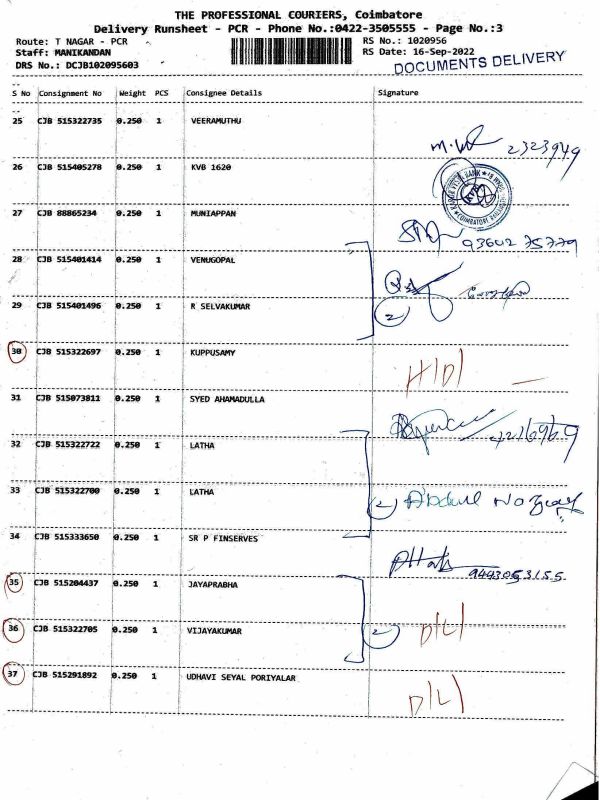 THE PROFESSIONAL COURIERS, Coimbatore
Delivery Runsheet - PCR - Phone No.:0422-3505555 - Page No.:3
Route: T NAGAR - PCR RS No.: 1020956
Staff: MANIKANDAN RS Date: 16-Sep-2022
DRS No.: DCJB102095603 DOCUMENTS DELIVERY
S No Consignment No Weight PCS Consignee Details Signature
25 CJB 515322735 0.250 1 VEERAMUTHU
2323949
26 CJB 515405278 0.250 1 KVB 1620
KVB
27 CJB 88865234 0.250 1 MUNIAPPAN
93602 75779
28 CJB 515401414 0.250 1 VENUGOPAL
29 CJB 515401496 0.250 1 R SELVAKUMAR
2
30 CJB 515322697 0.250 1 KUPPUSAMY
H/D/
31 CJB 515073811 0.250 1 SYED AHAMADULLA
32 CJB 515322722 0.250 1 LATHA
33 CJB 515322700 0.250 1 LATHA
2 Abdul
34 CJB 515333650 0.250 1 SR P FINSERVES
9443053155
35 CJB 515204437 0.250 1 JAYAPRABHA
36 CJB 515322705 0.250 1 VIJAYAKUMAR
2 D/L/
37 CJB 515291892 0.250 1 UDHAVI SEYAL PORIYALAR
D/L/